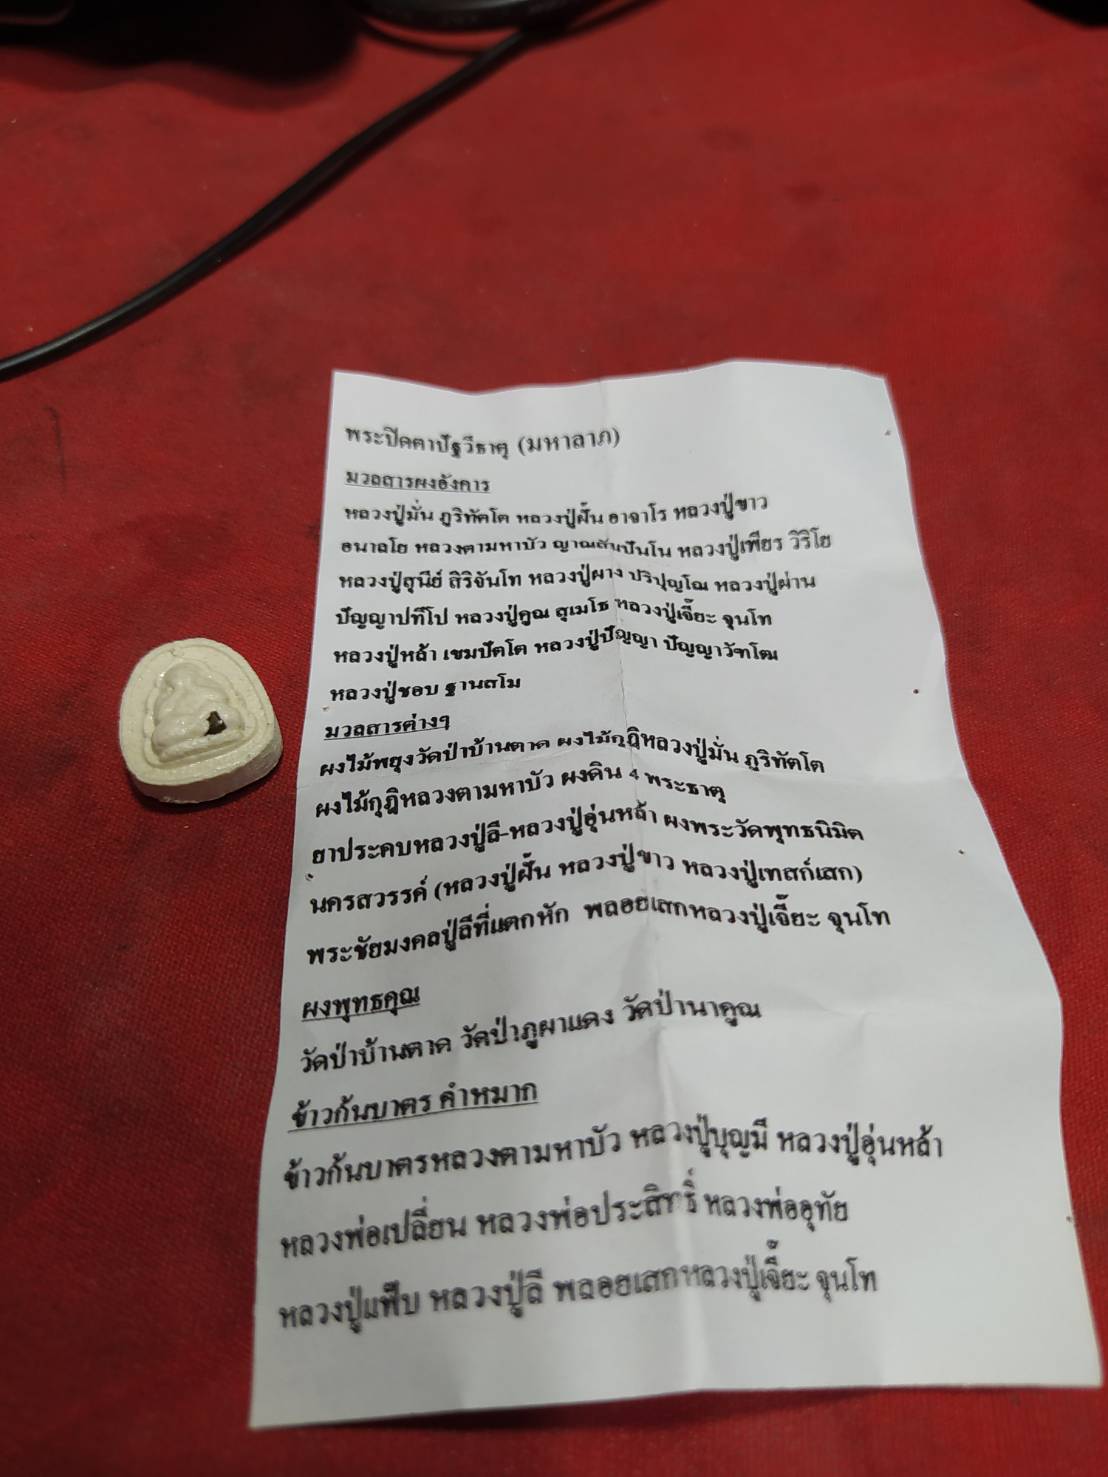 พระปิดตาปัฐวีธาตุ (มหาลาภ)
มวลสารผงอังคาร
หลวงปู่มั่น ภูริทัตโต หลวงปู่ฝั้น อาจาโร หลวงปู่ขาว
อนาลโย หลวงตามหาบัว ญาณสัมปันโน หลวงปู่เพียร วิริโย
หลวงปู่สุนีย์ สิริจันโท หลวงปู่ผาง ปริปุญโณ หลวงปู่ผ่าน
ปัญญาปทีโป หลวงปู่คูณ สุเมโธ หลวงปู่เจี๊ยะ จุนโท
หลวงปู่หล้า เขมปัตโต หลวงปู่ปัญญา ปัญญาวัฑโฒ
หลวงปู่ชอบ ฐานสโม
มวลสารต่างๆ
ผงไม้พยุงวัดป่าบ้านตาด ผงไม้กุฏิหลวงปู่มั่น ภูริทัตโต
ผงไม้กุฏิหลวงตามหาบัว ผงดิน 4 พระธาตุ
ยาประคบหลวงปู่ลี-หลวงปู่อุ่นหล้า ผงพระวัดพุทธนิมิต
นครสวรรค์ (หลวงปู่ฝั้น หลวงปู่ขาว หลวงปู่เทสก์เสก)
พระชัยมงคลปู่ลีที่แตกหัก พลอยเสกหลวงปู่เจี๊ยะ จุนโท
ผงพุทธคุณ
วัดป่าบ้านตาด วัดป่าภูผาแดง วัดป่านาคูณ
ข้าวก้นบาตร คำหมาก
ข้าวก้นบาตรหลวงตามหาบัว หลวงปู่บุญมี หลวงปู่อุ่นหล้า
หลวงพ่อเปลี่ยน หลวงพ่อประสิทธิ์ หลวงพ่ออุทัย
หลวงปู่แฟ๊บ หลวงปู่ลี พลอยเสกหลวงปู่เจี๊ยะ จุนโท